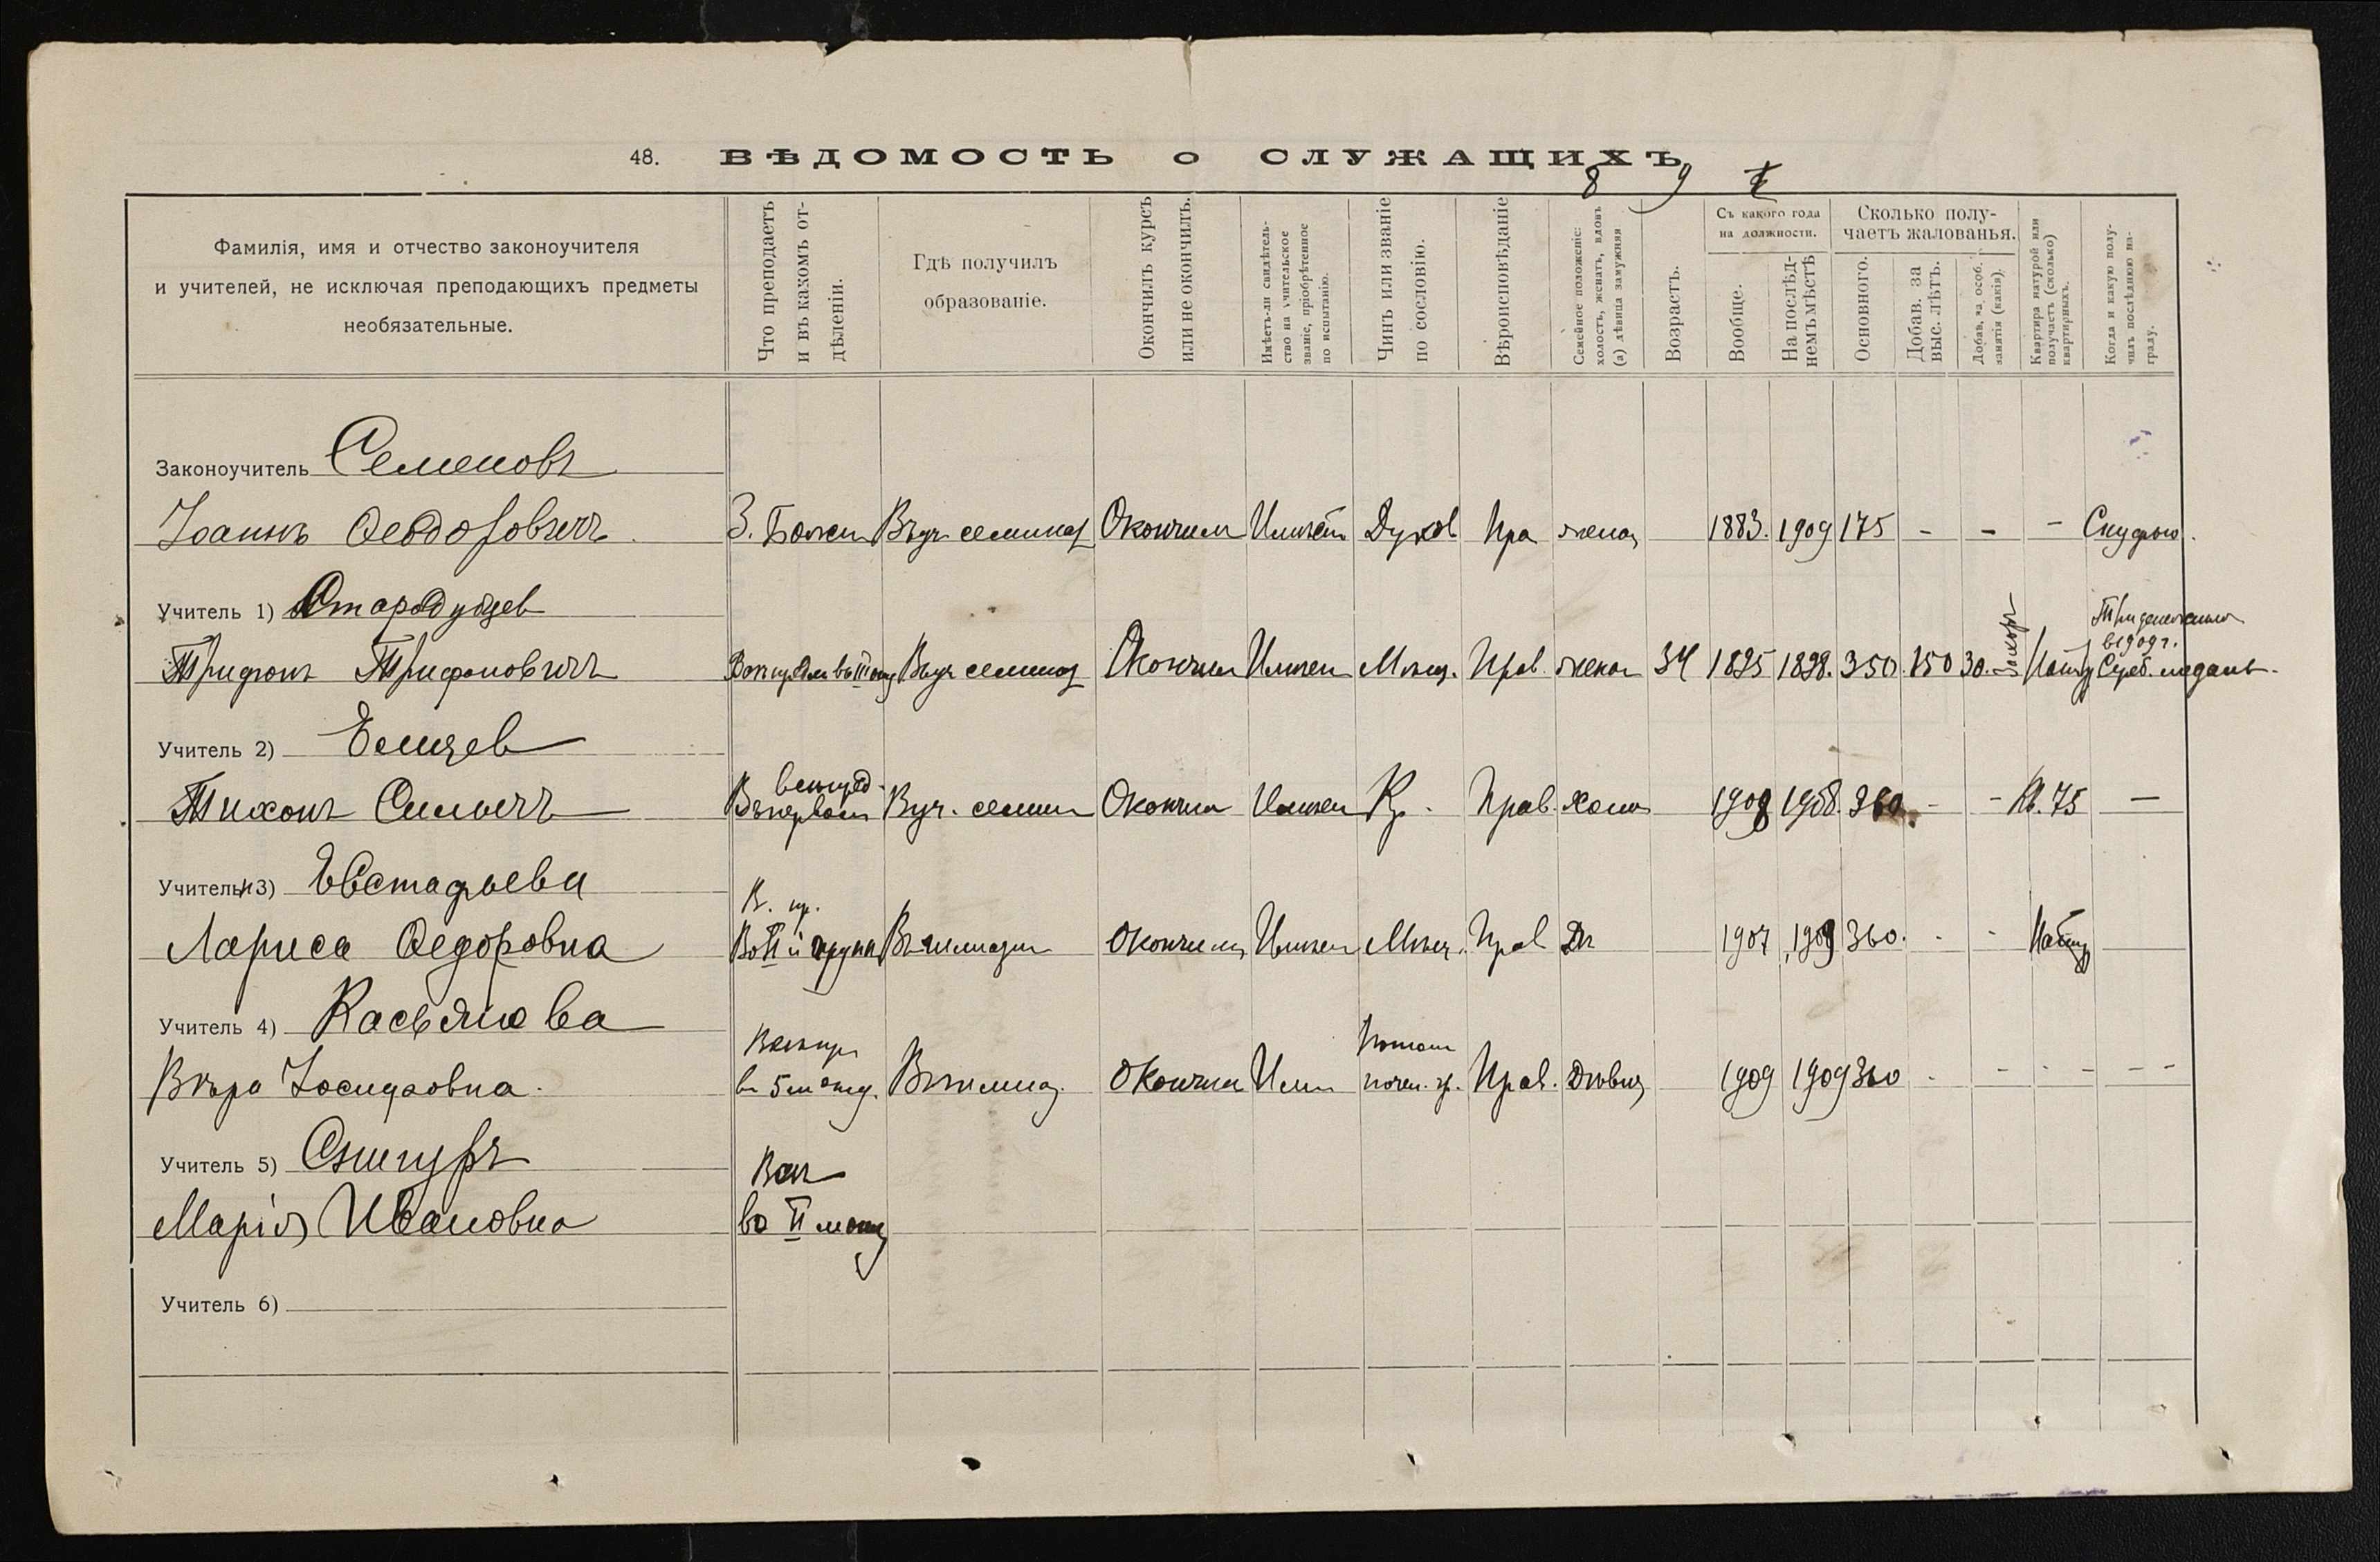 48. ВѢДОМОСТЬ о СЛУЖАЩИХЪ
8 9
Фамилія, имя и отчество законоучителя
и учителей, не исключая преподающихъ предметы
необязательные.
Что преподаетъ
и въ какомъ от-
дѣленіи.
Гдѣ получилъ
образованіе.
Окончилъ курсъ
или не окончилъ.
Имѣетъ-ли свидѣтель-
ство на учительское
званіе, пріобрѣтенное
по испытанію.
Чинъ или званіе
по сословію.
Вѣроисповѣданіе
Семейное положеніе:
холостъ, женатъ, вдовъ
(а) дѣвица замужняя
Возрастъ.
Съ какого года
на должности.
Вообще.
На послѣд-
немъ мѣстѣ
Сколько полу-
чаетъ жалованья.
Основного.
Добав. за
выс. лѣтъ.
Добав. на особ.
занятія (какія).
Квартира натурой или
получаетъ (сколько)
квартирныхъ.
Когда и какую полу-
чилъ послѣднюю на-
граду.
Законоучитель Семеновъ
Іоаннъ Ѳеодоровичъ З. Божій Въ уч. семинар Окончилъ Имѣетъ Духов Пра женат 1883. 1909 175 - - - Скуфью.
Учитель 1) Стародубцев
Трифонъ Трифоновичъ Въ уч. семинар Окончил Имѣет Мѣщ. Прав. женат 34 1895 1898. 350. 150 30. за хоръ Натур Сереб. медаль.
в 1909 г.
Учитель 2) Емцев
Тихонъ Силычъ В первом В уч. семин Окончил Имѣет Кр. Прав. холос 1908 1908. 360. - - Кв. 75 —
Учитель 3) Евстафьева
В. пр.
Лариса Ѳедоровна Во II й групп Въ гимназіи Окончила Имѣет Мѣщ. Прав Дѣ 1907 1909 360. - - Натур
Учитель 4) Касьянова
Вѣра Іосифовна. в 5 м отд. В гимназ. Окончила Имѣ Потом почет. гр. Прав. Дѣвиц 1909 1909 360 - - - - -
Учитель 5) Снигуръ
Марія Ивановна во II м отд
Учитель 6)